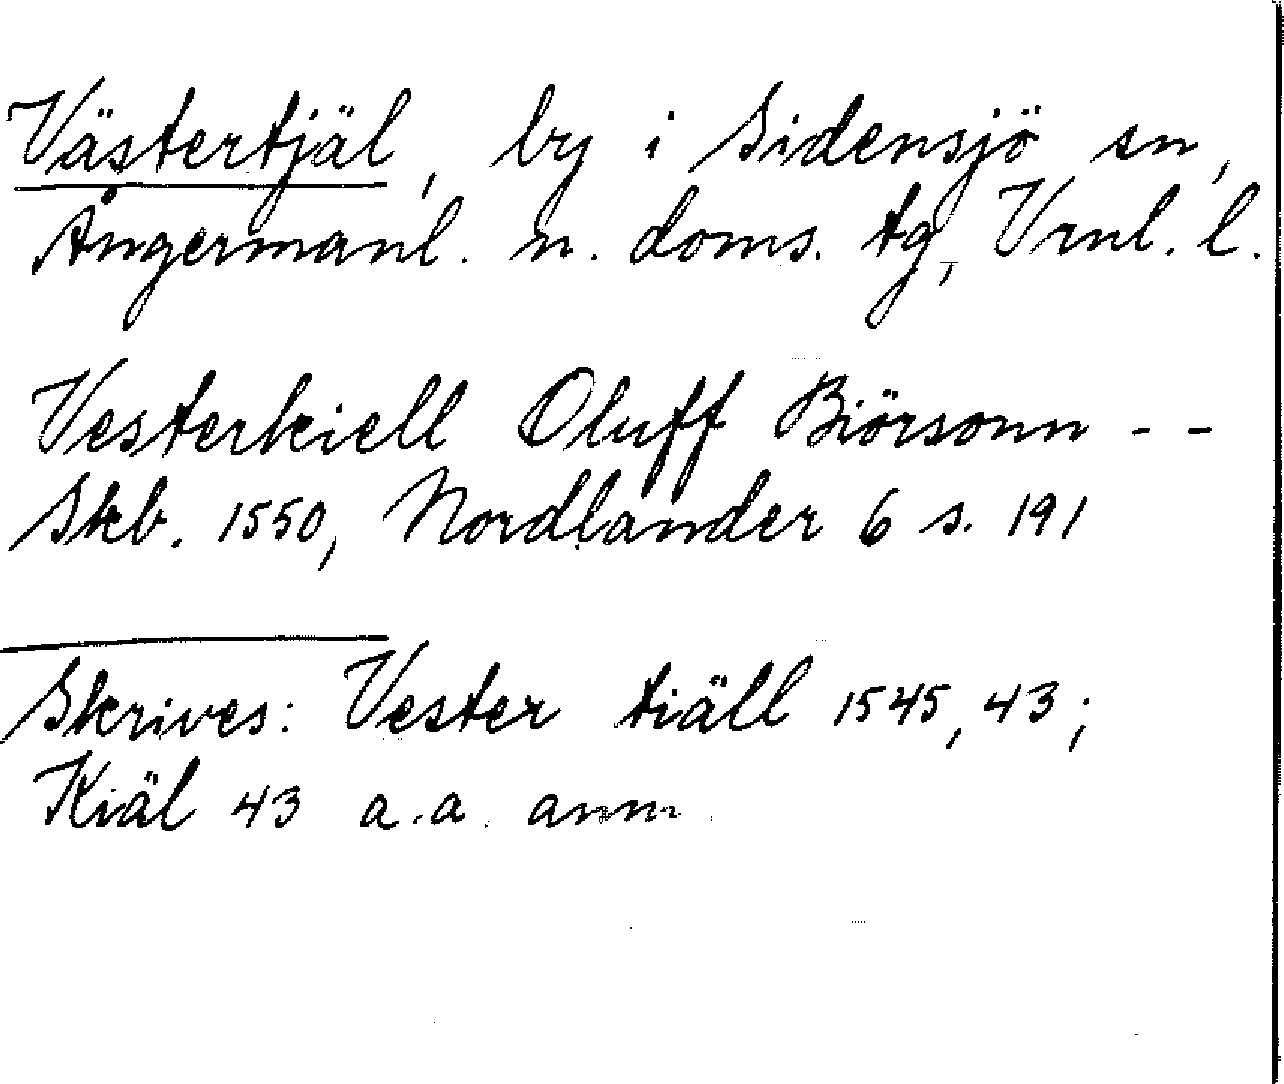 Västertjäl, by i Sidensjö sn,
Ångermanl. n. doms. tg, Vrnl. l.
Vesterkiell Oluff Biörsonn - -
Skb. 1550, Nordlander 6 s. 191
Skrives: Vester tiäll 1545, 43;
Kiäl 43 a.a. anm